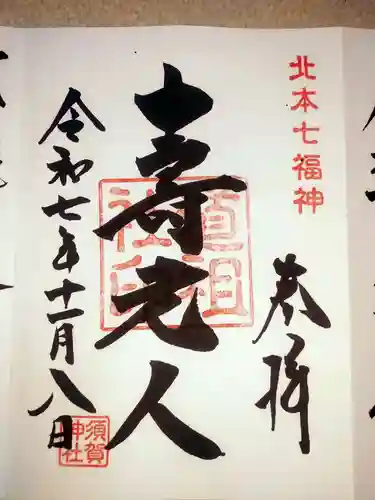 北本七福神
奉拝
壽老人
道祖
社印
令和七年十一月八日
須賀
神社